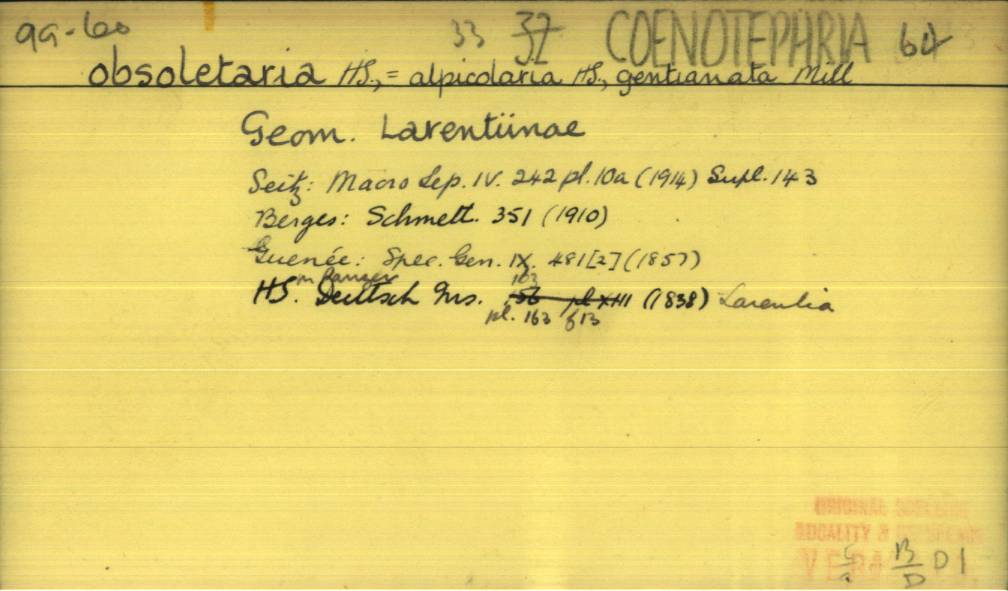 99-60 33 37 COENOTEPHRIA 64
obsoletaria HS, = alpicolaria HS, gentianata Mill
Geom. Larentiinae
Seitz: Macro Lep. IV. 242 pl. 10a (1914) Supl. 143
Berges: Schmett. 351 (1910)
Guenée: Spec. Gen. IX. 481 [2] (1857)
in Panzer 163
HS. Deutsch Ins. pl XIII (1838) Larentia
pl. 163 f 13
ORIGINAL
LOCALITY &
B/D D1